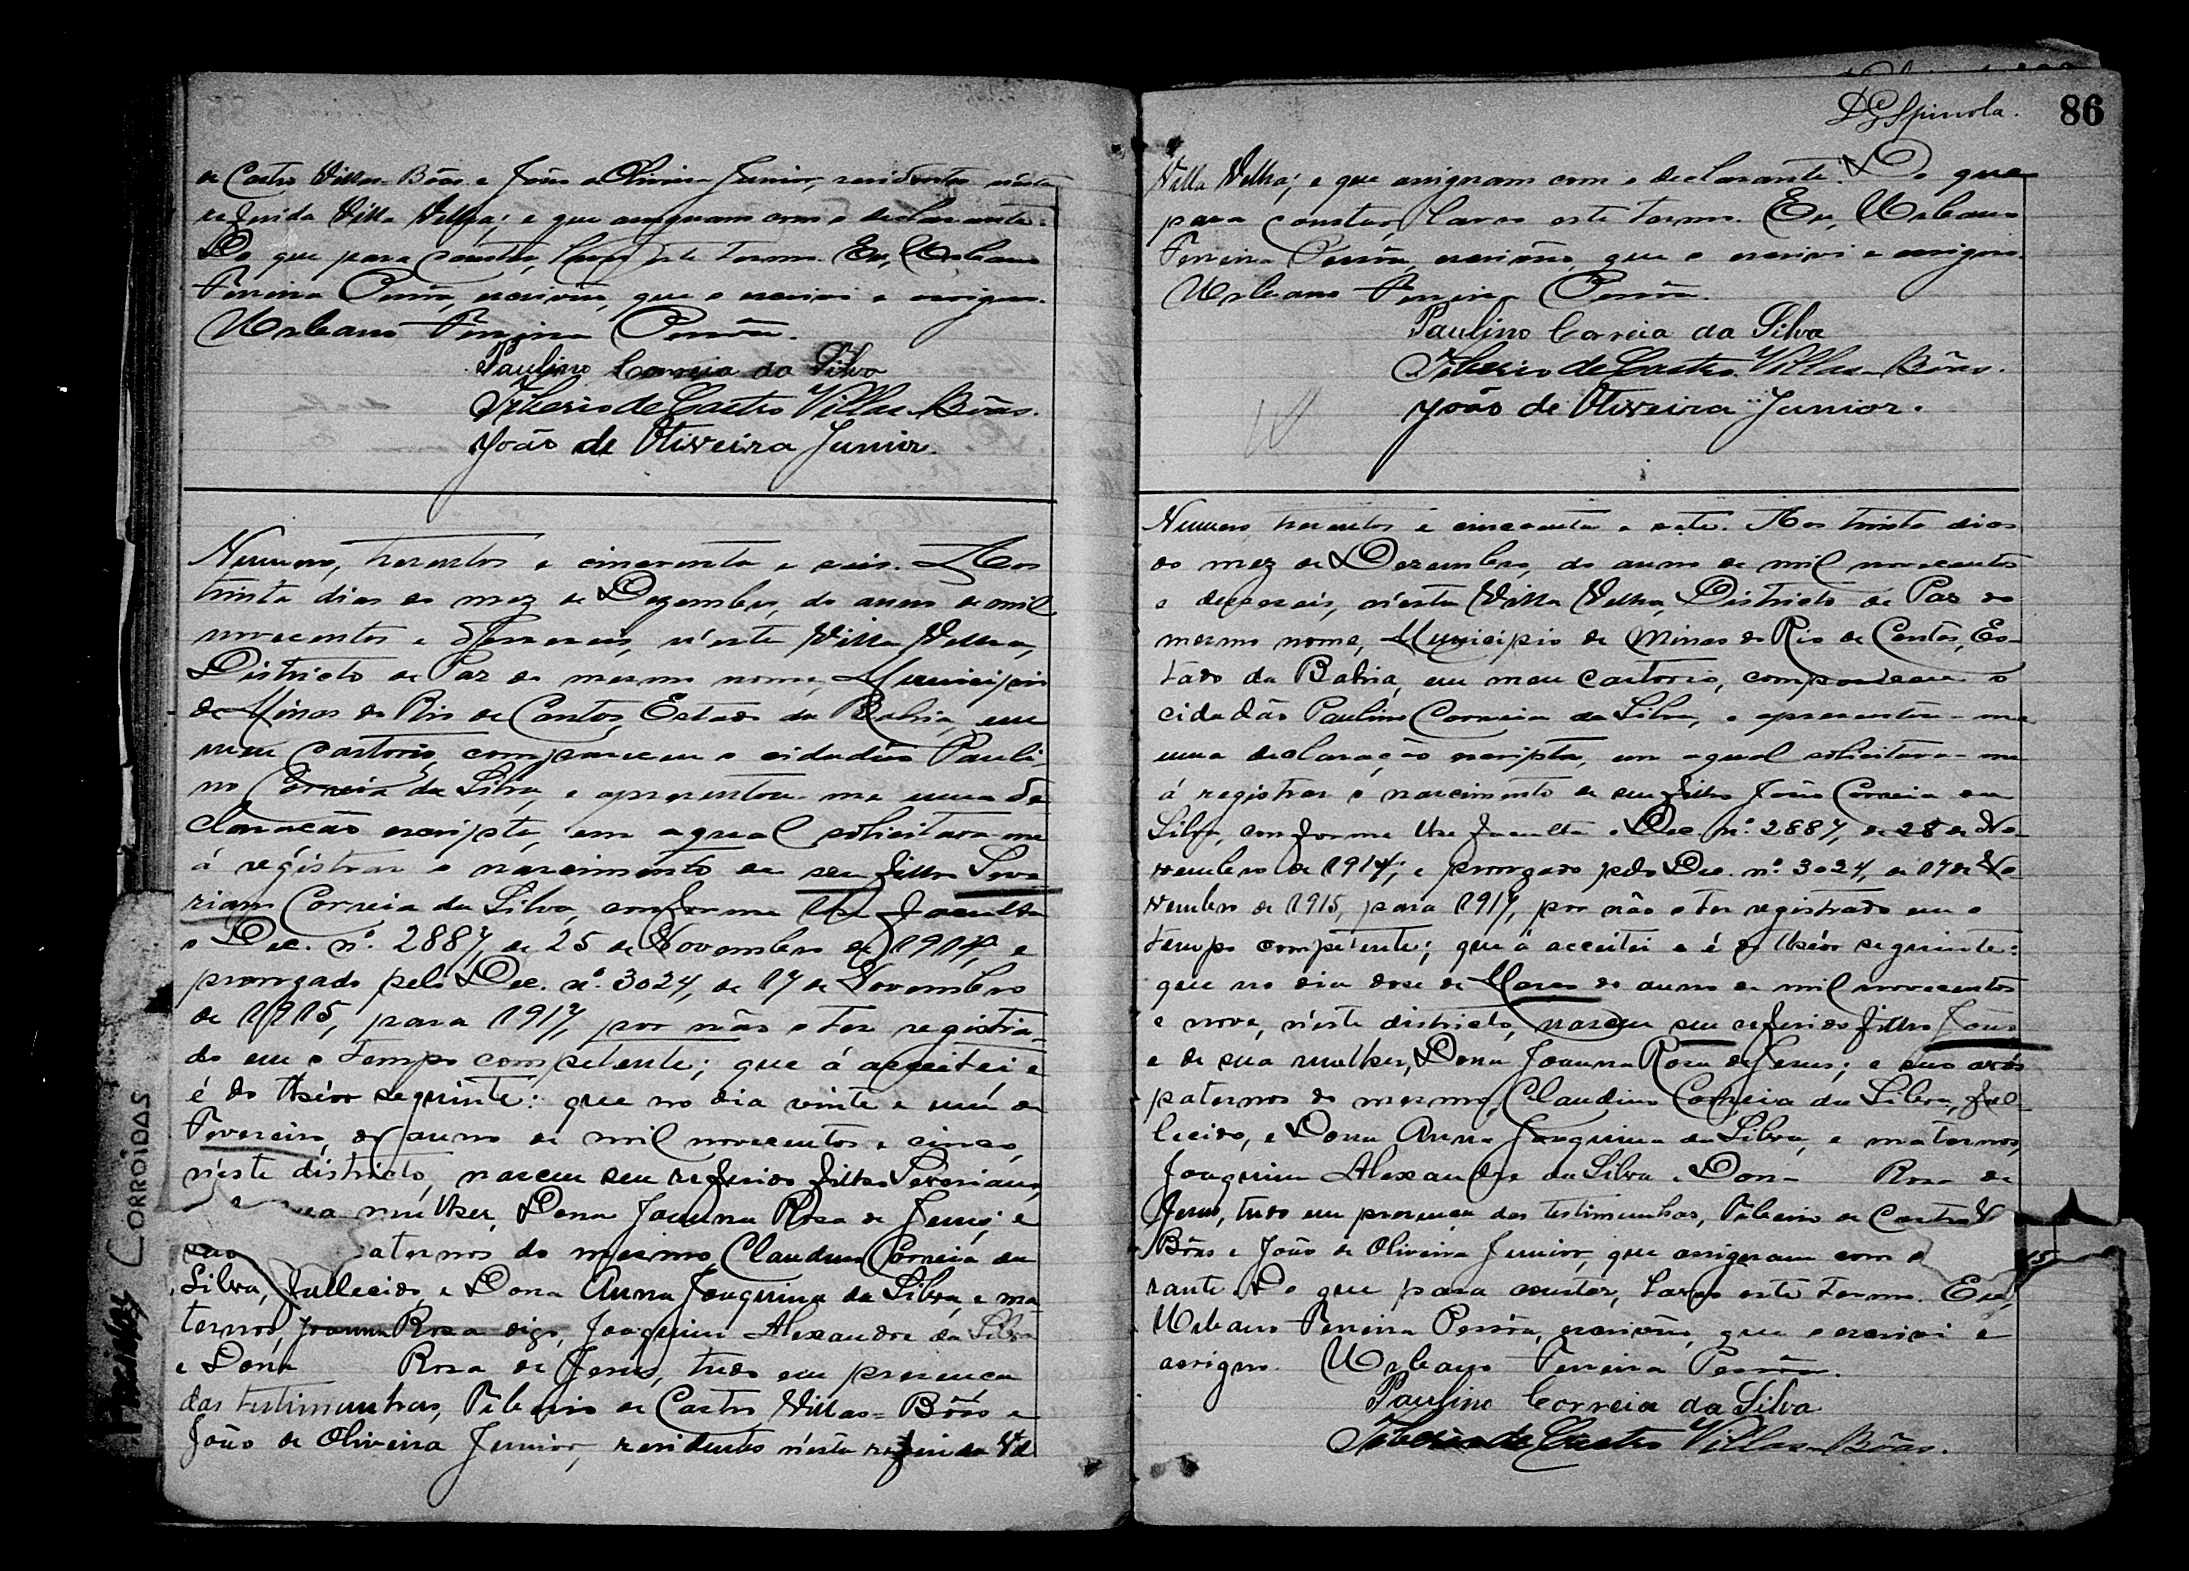 de Castro Villas-Bôas e João de Oliveira Junior, residentes n'esta
referida Villa Velha; e que assignam com o declarante.
Do que para constar, lavro este termo. Eu, Urbano
Ferreira Pessôa, escrivão, que o escrevi e assigno.
Urbano Ferreira Pessôa.
Paulino Correia da Silva
Tiberio de Castro Villas-Bôas.
João de Oliveira Junior.
Numero, trezentos e cincoenta e seis. Aos
trinta dias do mez de Dezembro, do anno de mil
novecentos e dezeseis, n'esta Villa Velha,
Districto de Paz do mesmo nome, Municipio
de Minas do Rio de Contas, Estado da Bahia, em
meu cartorio, compareceu o cidadão Pauli
no Correia da Silva, e apresentou-me uma de
claração escripta, em a qual solicitava-me
á registrar o nascimento de seu filho Seve
riano Correia da Silva, conforme lhe faculta
o Dec. nº. 2887, de 25 de Novembro de 1914, e
prorogado pelo Dec. nº. 3024, de 17 de Novembro
de 1915, para 1917, por não o ter registra-
do em o tempo competente; que á acceitei e
é do theôr seguinte: que no dia vinte e um de
Fevereiro, do anno de mil novecentos e cinco,
n'este districto, nasceu seu referido filho Severiano,
e mulher, Dona Joanna Rosa de Jesus; e
seus aternos do mesmo, Claudino Correia da
Silva, fallecido, e Dona Anna Joaquina da Silva, e ma-
ternos, Joanna Rosa digo, Joaquim Alexandre da Silva
e Dona Rosa de Jesus, tudo em presença
das testimunhas, Tiberio de Castro Villas-Bôas e
João de Oliveira Junior, residentes n'esta referida
Précinhas CORROÍDAS
DG Spinola. 86
Villa Velha; e que assignam com o declarante. Do que
para constar, lavro este termo. Eu, Urbano
Ferreira Pessôa, escrivão, que o escrevi e assigno.
Urbano Ferreira Pessôa.
Paulino Correia da Silva
Tiberio de Castro Villas-Bôas.
João de Oliveira Junior.
Numero trezentos e cincoenta e sete. Aos trinta dias
do mez de Dezembro, do anno de mil novecentos
e dezeseis, n'esta Villa Velha, Districto de Paz do
mesmo nome, Municipio de Minas do Rio de Contas, Es-
tado da Bahia, em meu cartorio, compareceu o
cidadão Paulino Correia da Silva, e apresentou-me
uma declaração escripta, em a qual solicitava-me
á registrar o nascimento de seu filho João Correia da
Silva, conforme lhe faculta o Dec. nº. 2887, de 25 de No-
vembro de 1914; e prorogado pelo Dec. nº. 3024, de 17 de No-
vembro de 1915, para 1917, por não o ter registrado em o
tempo competente; que á acceitei e é do theôr seguinte:
que no dia doze de Março do anno de mil novecentos
e nove, n'este districto, nasceu seu referido filho João
e de sua mulher, Dona Joanna Rosa de Jesus; e seus avós
paternos do mesmo, Claudino Correia da Silva, fal-
lecido, e Dona Anna Joaquina da Silva, e maternos,
Joaquim Alexandre da Silva e Dona Rosa de
Jesus, tudo em presença das testimunhas, Tiberio de Castro V
Bôas e João de Oliveira Junior, que assignam com o
rante. Do que para constar, lavro este termo. Eu,
Urbano Ferreira Pessôa, escrivão, que o escrevi e
assigno. Urbano Ferreira Pessôa.
Paulino Correia da Silva
Tiberio de Castro Villas-Bôas.